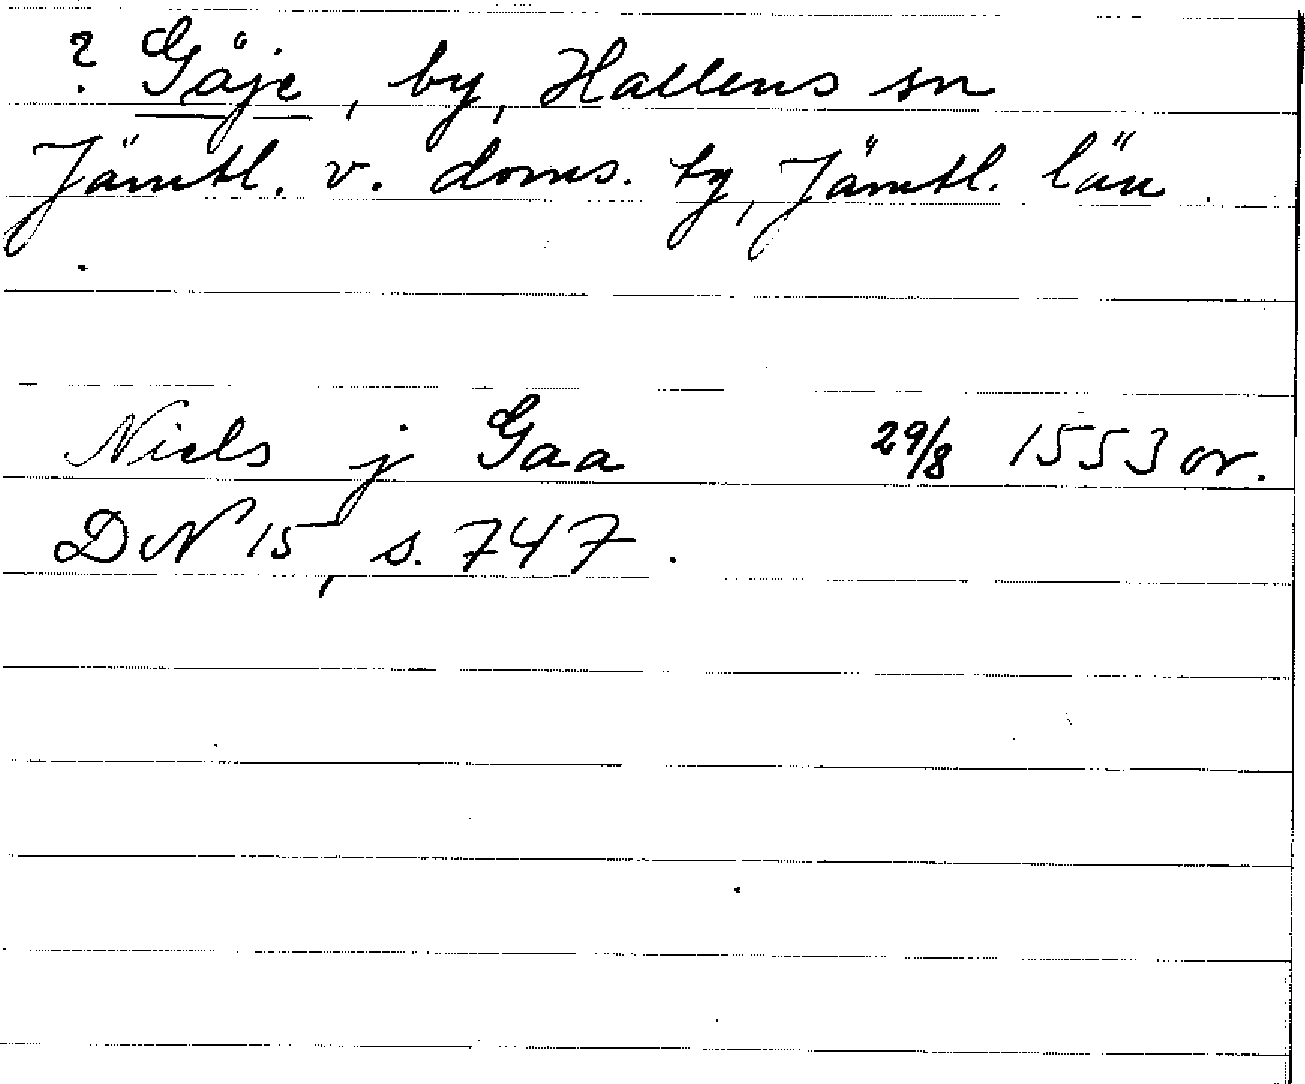 ? Gåje, by, Hallens sn
Jämtl. v. doms. tg, Jämtl. län.
Niels j Gaa 29/8 1553 or.
DN 15, s. 747.